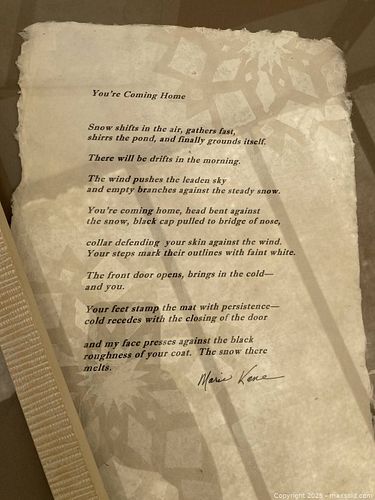 You're Coming Home
Snow shifts in the air, gathers fast,
shirrs the pond, and finally grounds itself.
There will be drifts in the morning.
The wind pushes the leaden sky
and empty branches against the steady snow.
You're coming home, head bent against
the snow, black cap pulled to bridge of nose,
collar defending your skin against the wind.
Your steps mark their outlines with faint white.
The front door opens, brings in the cold—
and you.
Your feet stamp the mat with persistence—
cold recedes with the closing of the door
and my face presses against the black
roughness of your coat. The snow there
melts.
Marie Kane